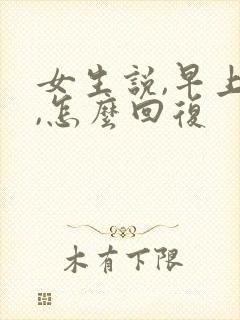 女生説,早上
,怎麼回復
木有下限